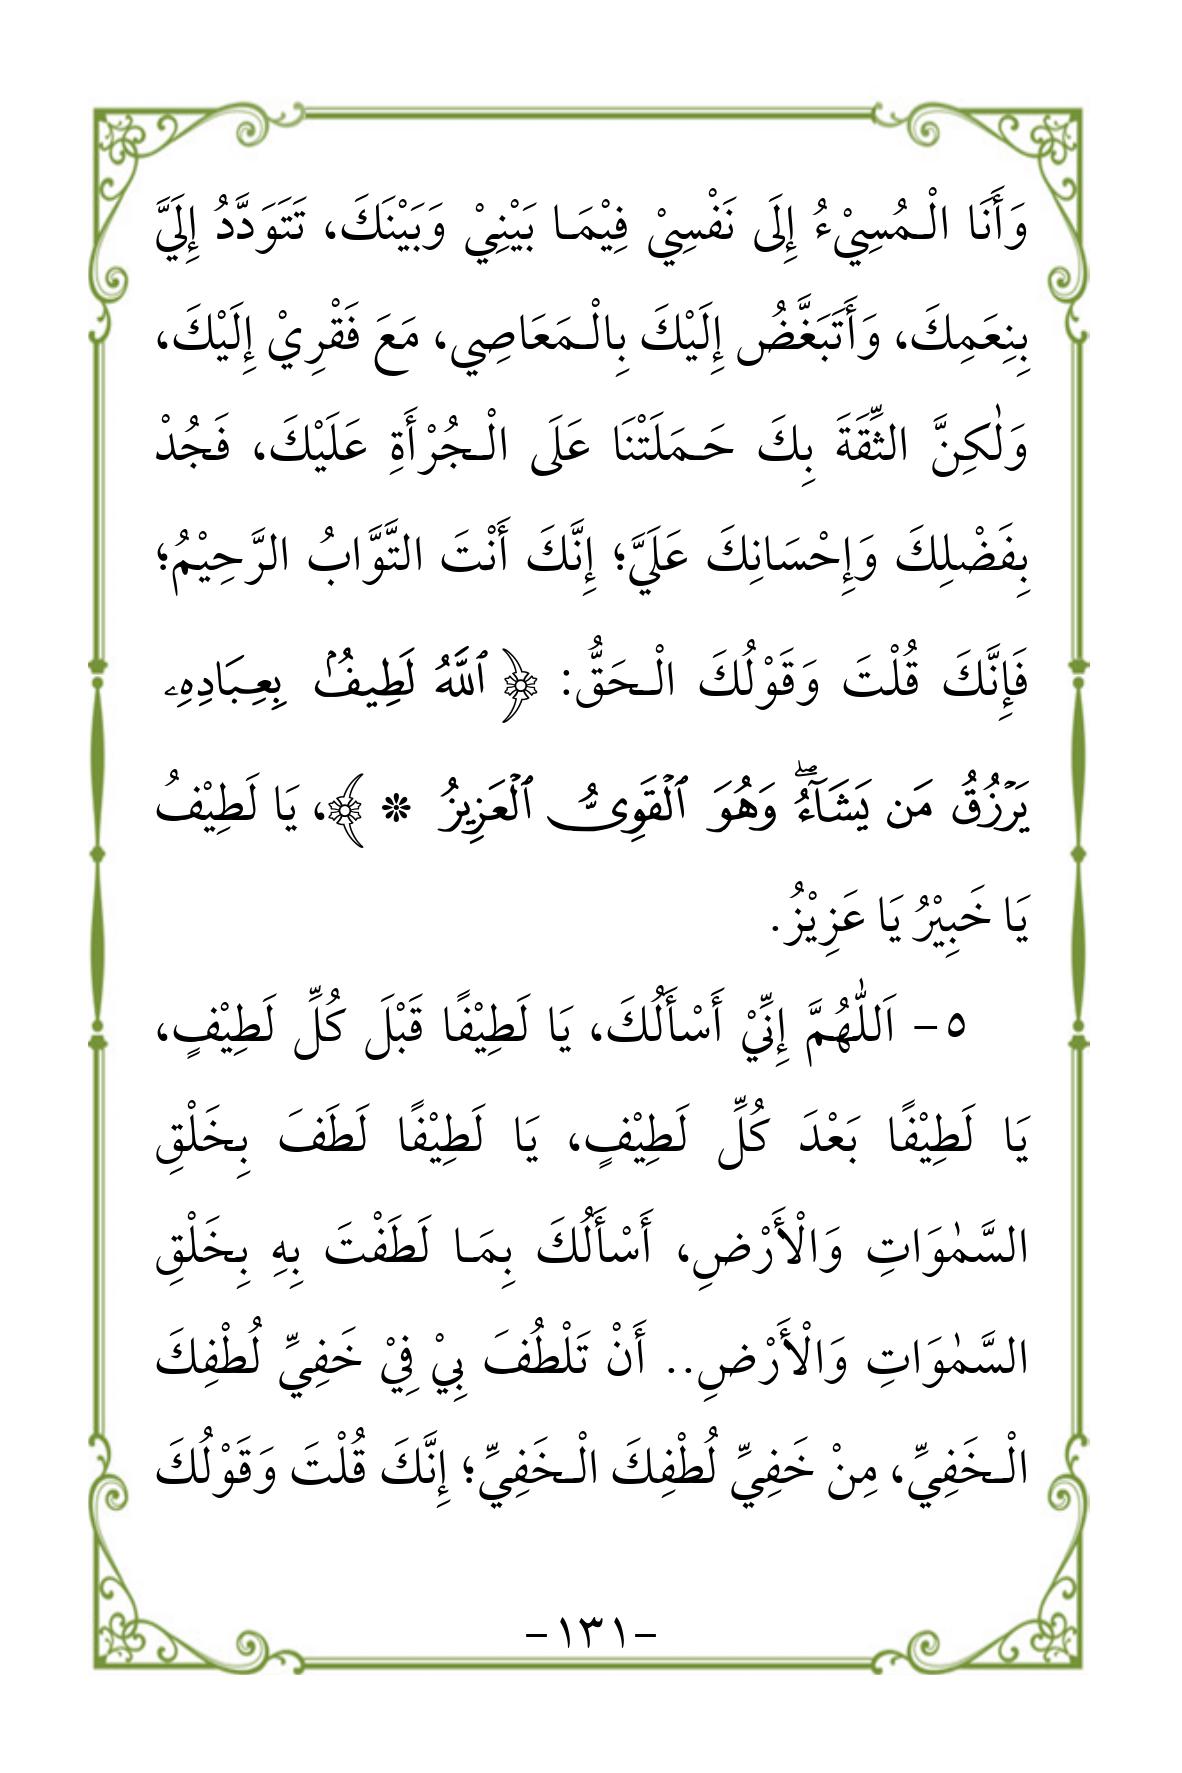 وَأَنَا الْـمُسِيْءُ إِلَى نَفْسِيْ فِيْمَـا بَيْنِيْ وَبَيْنَكَ، تَتَوَدَّدُ إِلَيَّ
بِنِعَمِكَ، وَأَتَبَغَّضُ إِلَيْكَ بِالْـمَعَاصِي، مَعَ فَقْرِيْ إِلَيْكَ،
وَلٰكِنَّ الثِّقَةَ بِكَ حَـمَلَتْنَا عَلَى الْـجُرْأَةِ عَلَيْكَ، فَجُدْ
بِفَضْلِكَ وَإِحْسَانِكَ عَلَيَّ؛ إِنَّكَ أَنْتَ التَّوَّابُ الرَّحِيْمُ؛
فَإِنَّكَ قُلْتَ وَقَوْلُكَ الْـحَقُّ: ﴿ ٱللَّهُ لَطِيفُۢ بِعِبَادِهِۦ
يَرۡزُقُ مَن يَشَآءُۖ وَهُوَ ٱلۡقَوِيُّ ٱلۡعَزِيزُ * ﴾، يَا لَطِيْفُ
يَا خَبِيْرُ يَا عَزِيْزُ.
٥- اَللّٰهُمَّ إِنِّيْ أَسْأَلُكَ، يَا لَطِيْفًا قَبْلَ كُلِّ لَطِيْفٍ،
يَا لَطِيْفًا بَعْدَ كُلِّ لَطِيْفٍ، يَا لَطِيْفًا لَطَفَ بِخَلْقِ
السَّمٰوَاتِ وَالْأَرْضِ، أَسْأَلُكَ بِمَـا لَطَفْتَ بِهِ بِخَلْقِ
السَّمٰوَاتِ وَالْأَرْضِ.. أَنْ تَلْطُفَ بِيْ فِيْ خَفِيِّ لُطْفِكَ
الْـخَفِيِّ، مِنْ خَفِيِّ لُطْفِكَ الْـخَفِيِّ؛ إِنَّكَ قُلْتَ وَقَوْلُكَ
-١٣١-